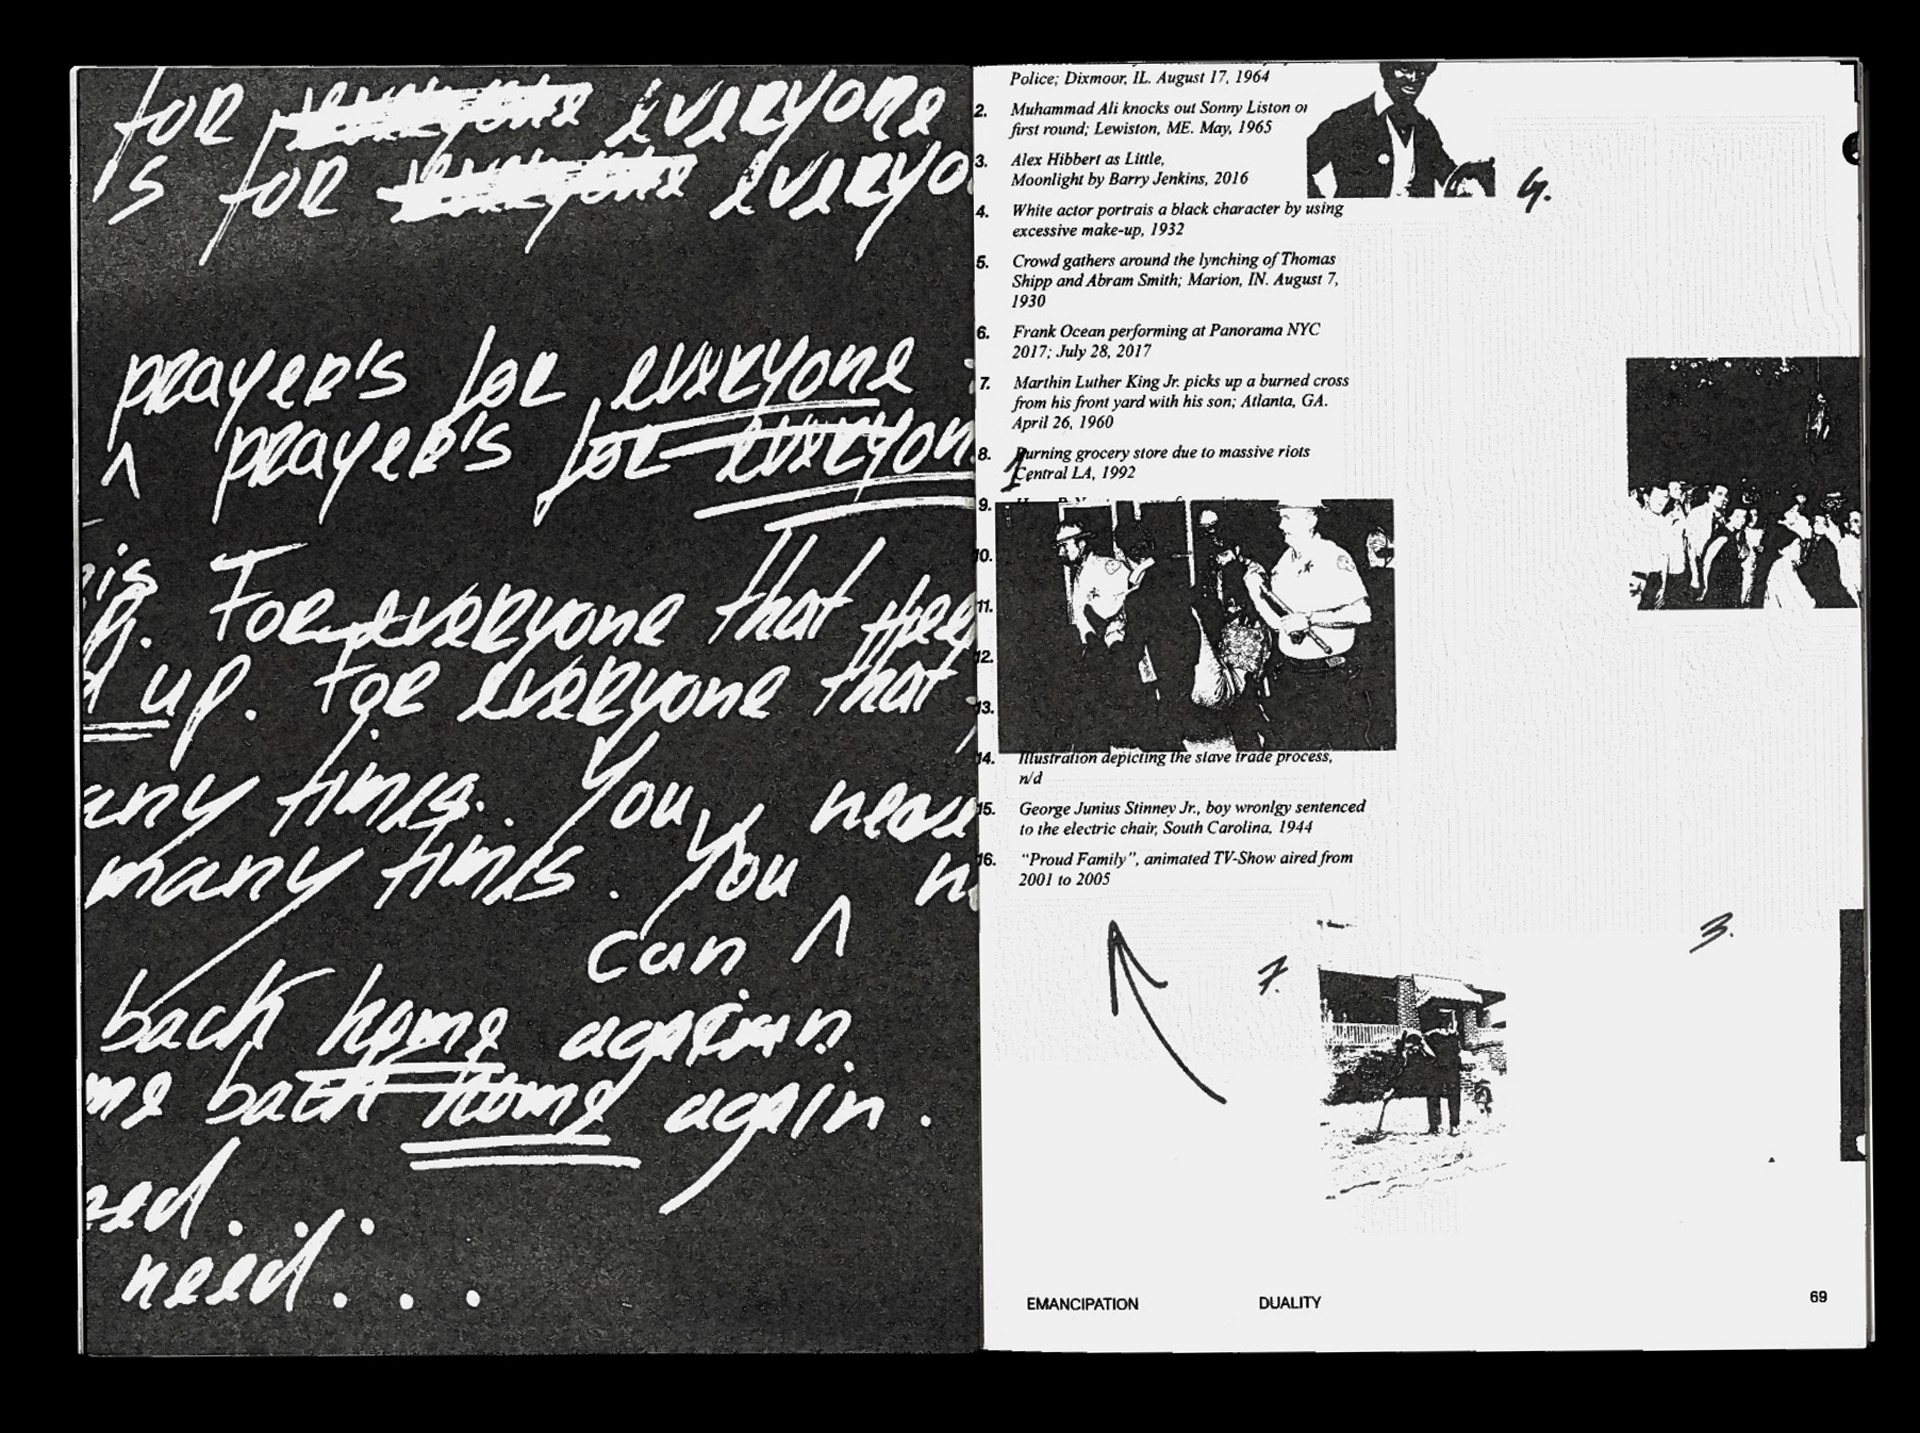 for everyone everyone
is for everyone everyo
prayer's for everyone
^ prayer's for everyon
is For everyone that they
h.
d up. For everyone that
any times. You
many times. You
can ^
back home again
me back home again.
need. . .
need. . .
Police; Dixmoor, IL. August 17, 1964
2. Muhammad Ali knocks out Sonny Liston on
first round; Lewiston, ME. May, 1965
3. Alex Hibbert as Little,
Moonlight by Barry Jenkins, 2016
4. White actor portrais a black character by using
excessive make-up, 1932
5. Crowd gathers around the lynching of Thomas
Shipp and Abram Smith; Marion, IN. August 7,
1930
6. Frank Ocean performing at Panorama NYC
2017; July 28, 2017
7. Marthin Luther King Jr. picks up a burned cross
from his front yard with his son; Atlanta, GA.
April 26, 1960
8. Burning grocery store due to massive riots
Central LA, 1992
1
9.
10.
11.
12.
13.
14. Illustration depicting the slave trade process,
n/d
15. George Junius Stinney Jr., boy wronlgy sentenced
to the electric chair, South Carolina, 1944
16. "Proud Family", animated TV-Show aired from
2001 to 2005
4.
3.
7.
EMANCIPATION DUALITY 69